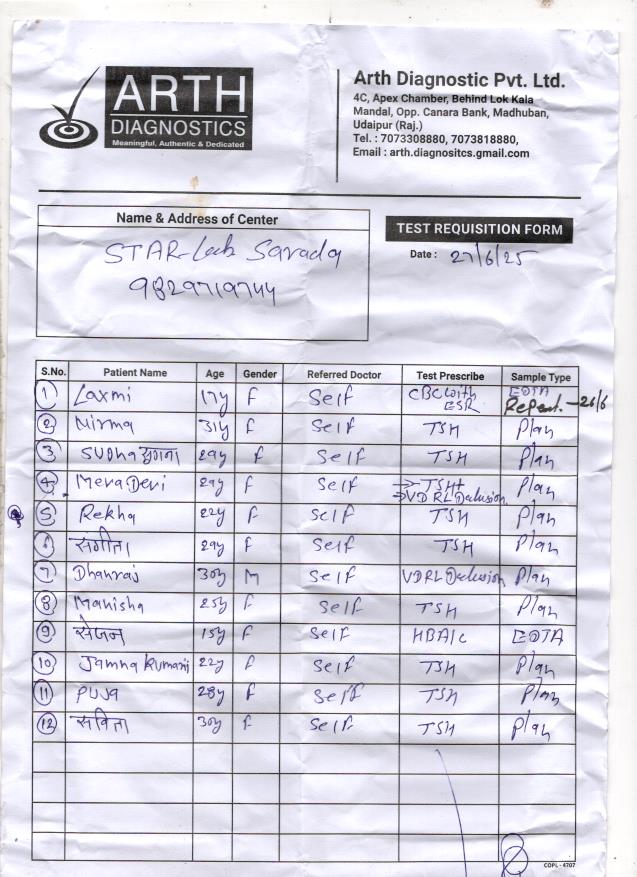 ARTH
DIAGNOSTICS
Meaningful, Authentic & Dedicated
Arth Diagnostic Pvt. Ltd.
4C, Apex Chamber, Behind Lok Kala
Mandal, Opp. Canara Bank, Madhuban,
Udaipur (Raj.)
Tel. : 7073308880, 7073818880,
Email : arth.diagnositcs.gmail.com
Name & Address of Center
STAR-Lab Sarada
9829719744
TEST REQUISITION FORM
Date : 27/6/25
S.No. Patient Name Age Gender Referred Doctor Test Prescribe Sample Type
1 Laxmi 17y F Self CBC with ESR EDTA Repeat. - 26/6
2 Nirma 31y F Self TSH Plan
3 Subha 29y F Self TSH Plan
4 Mera Devi 29y F Self → TSH+ → VDRL Dulusion Plan
5 Rekha 22y F Self TSH Plan
संगीता 29y F Self TSH Plan
7 Dhanraj 30y M Self VDRL Dulusion Plan
8 Manisha 25y F Self TSH Plan
9 सेजन 15y F Self HBA1C EDTA
10 Jamna Kumari 22y F Self TSH Plan
11 Puja 28y F Self TSH Plan
12 सविता 30y F Self TSH Plan
COPL - 4707